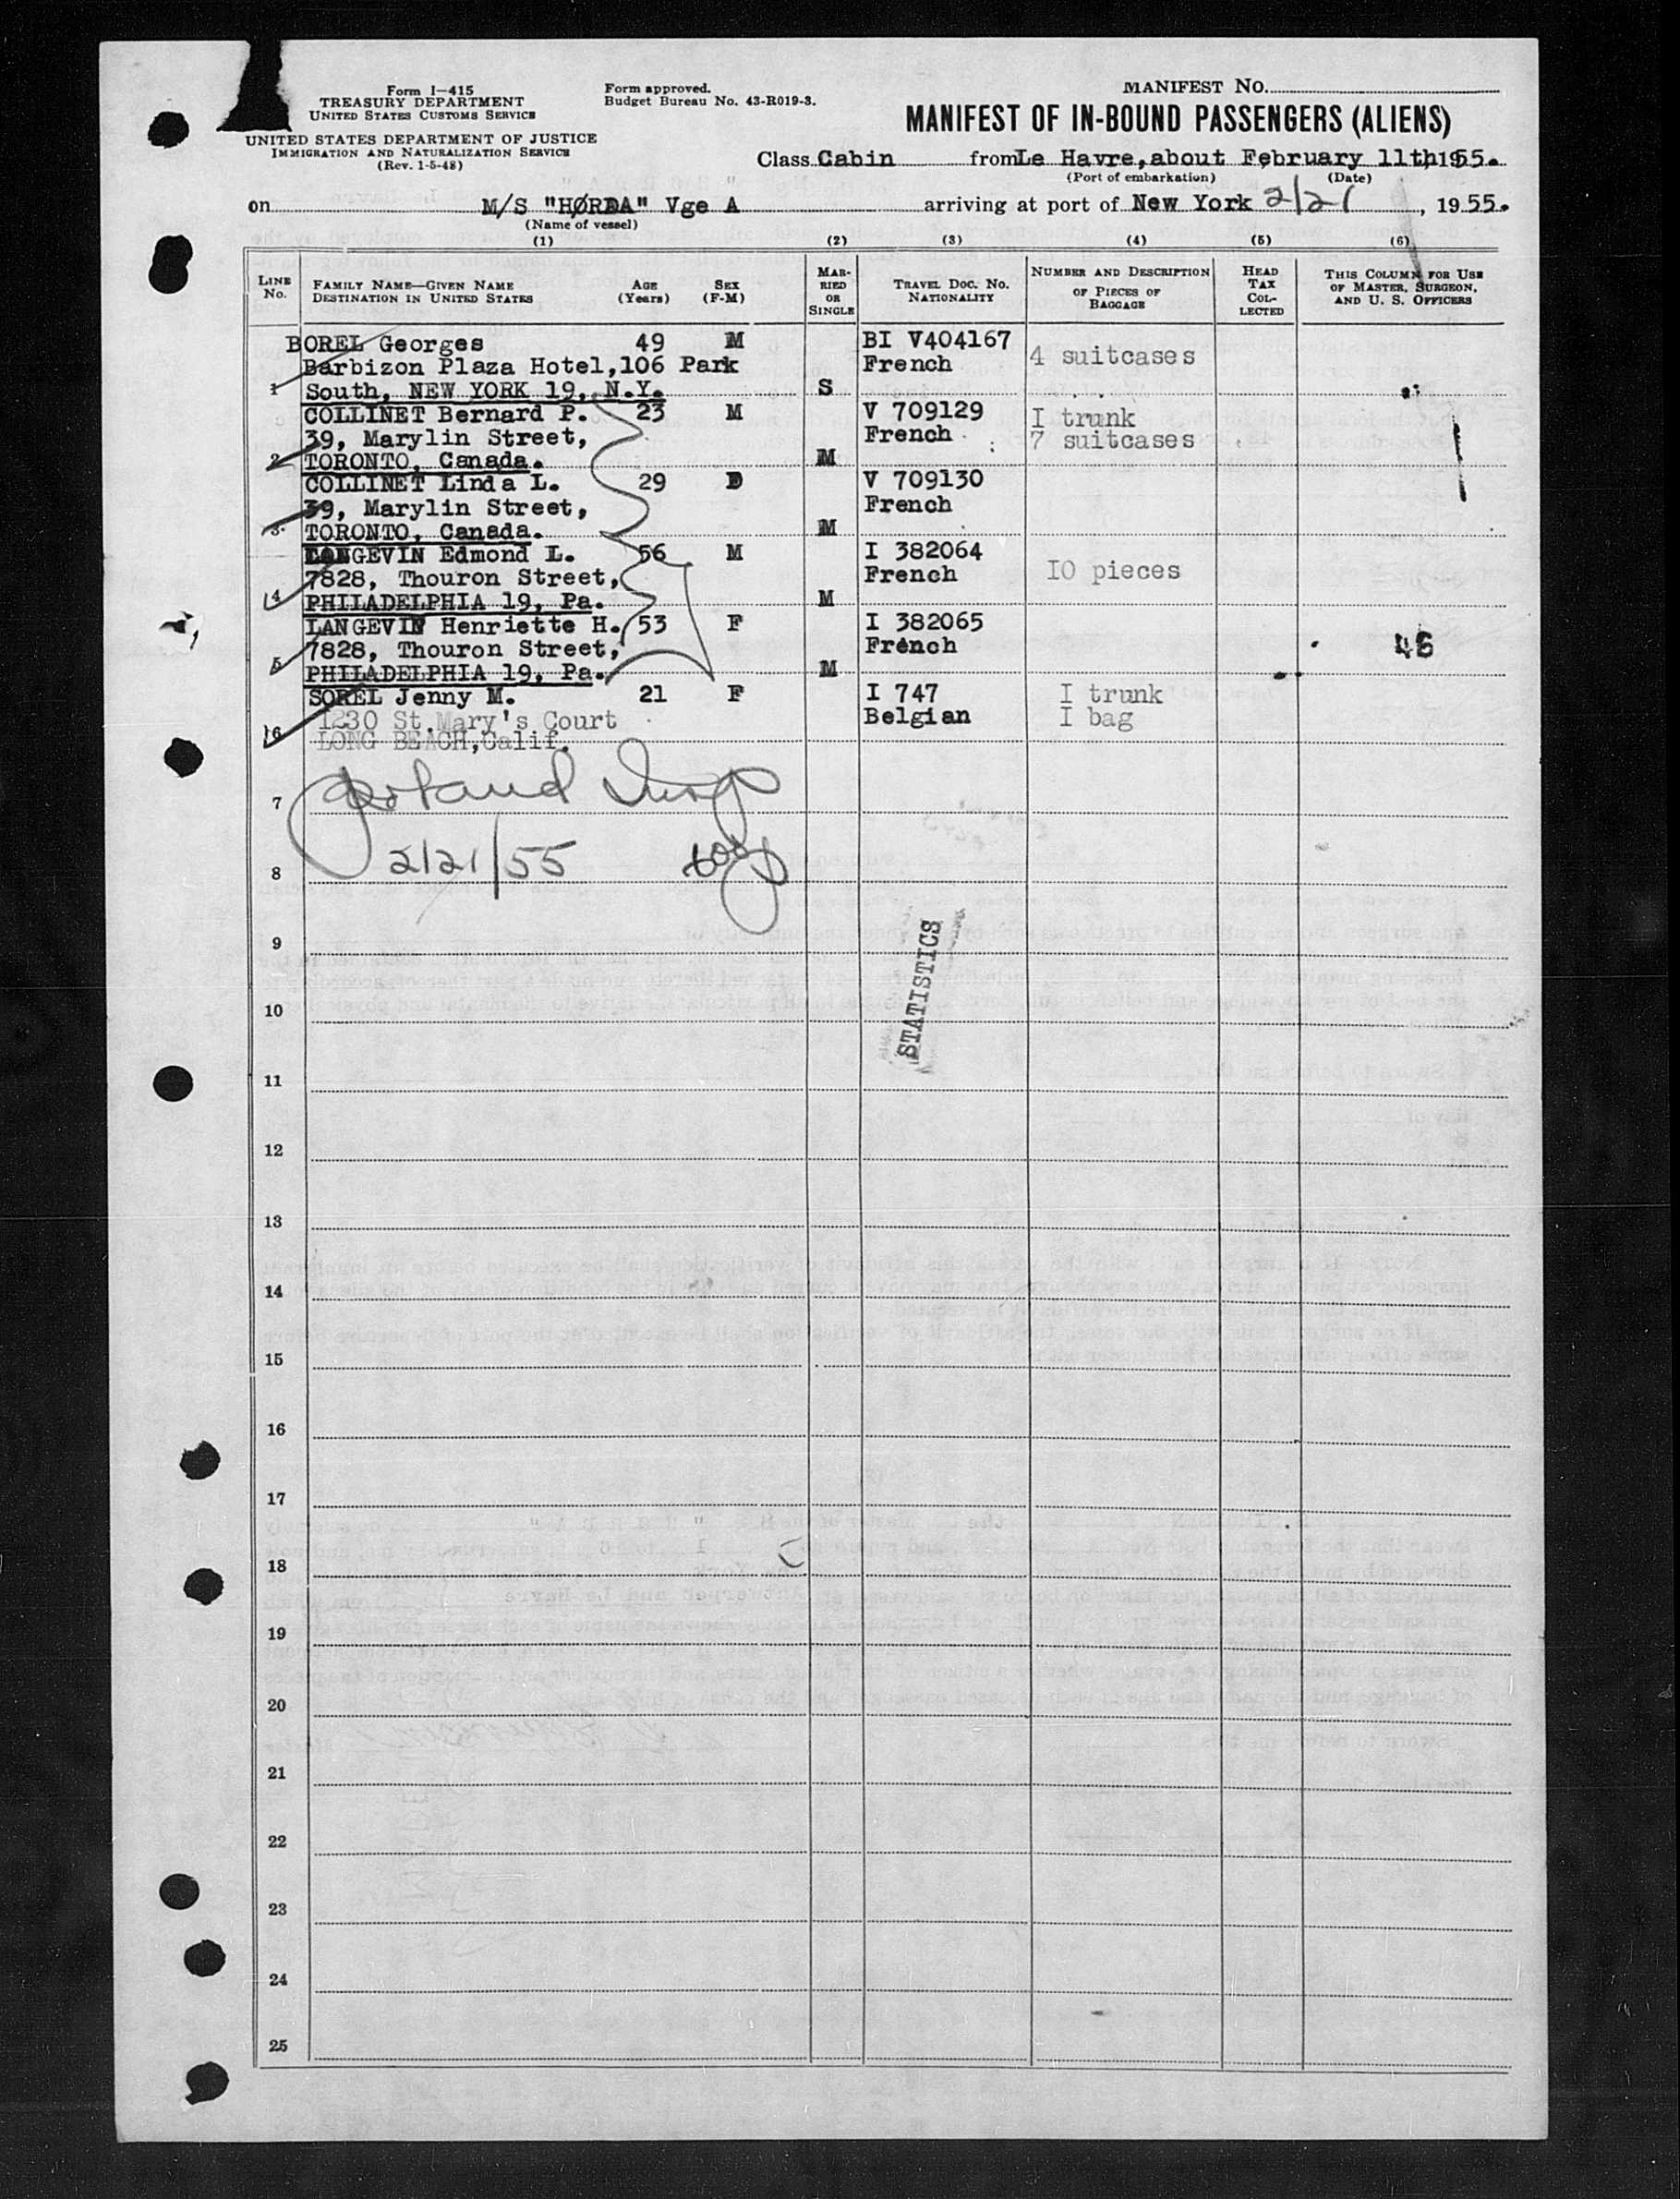 Form I-415
TREASURY DEPARTMENT
UNITED STATES CUSTOMS SERVICE
UNITED STATES DEPARTMENT OF JUSTICE
IMMIGRATION AND NATURALIZATION SERVICE
(Rev. 1-5-48)
Form approved.
Budget Bureau No. 43-R019-3.
MANIFEST NO.
MANIFEST OF IN-BOUND PASSENGERS (ALIENS)
Class Cabin from Le Havre, about February 11th, 1955.
(Port of embarkation) (Date)
on M/S "HØRDA" Vge A arriving at port of New York 2/21, 1955.
(Name of vessel)
(1) (2) (3) (4) (5) (6)
LINE NO. FAMILY NAME—GIVEN NAME DESTINATION IN UNITED STATES AGE (YEARS) SEX (F-M) MARRIED OR SINGLE TRAVEL DOC. NO. NATIONALITY NUMBER AND DESCRIPTION OF PIECES OF BAGGAGE HEAD TAX COLLECTED THIS COLUMN FOR USE OF MASTER, SURGEON, AND U. S. OFFICERS
BOREL Georges 49 M BI V404167
Barbizon Plaza Hotel,106 Park French 4 suitcases
1 South, NEW YORK 19, N.Y. S
COLLINET Bernard P. 23 M V 709129 I trunk
39, Marylin Street, French 7 suitcases
2 TORONTO, Canada. M
COLLINET Linda L. 29 D V 709130
39, Marylin Street, French
3 TORONTO, Canada. M
LANGEVIN Edmond L. 56 M I 382064
7828, Thouron Street, French 10 pieces
4 PHILADELPHIA 19, Pa. M
LANGEVIN Henriette H. 53 F I 382065
7828, Thouron Street, French 46
5 PHILADELPHIA 19, Pa. M
SOREL Jenny M. 21 F I 747 I trunk
1230 St.Mary's Court Belgian I bag
6 LONG BEACH,Calif.
7
2/21/55
8
STATISTICS
9
10
11
12
13
14
15
16
17
18
19
20
21
22
23
24
25